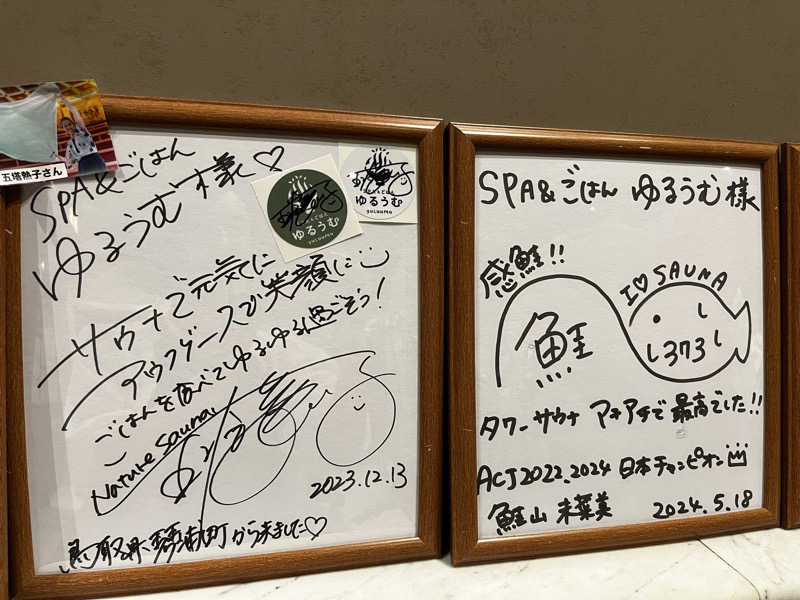 五塔熱子さん
SPA&ごはん
ゆるうむ様♡
ゆるうむ
YURUUMU
ゆるうむ
YURUUMU
サウナで元気に
アウフグースで笑顔に
ごはんを食べてゆるゆる過ごそう!
Nature Sauna
2023.12.13
鳥取県琴浦町から来ました♡
SPA&ごはん ゆるうむ様
感鮭!!
I♡SAUNA
鮭
373
タワーサウナ アチアチで最高でした!!
ACJ2022.2024 日本チャンピオン
鮭山 未菜美
2024.5.18